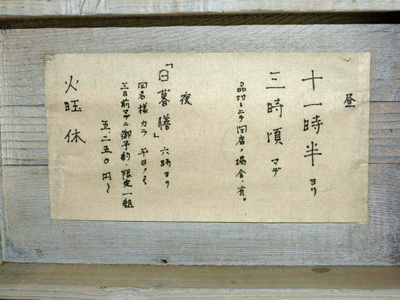 昼
十一時半ヨリ
三時頃マデ
品切ニテ閉店ノ場合有。
夜
「日暮膳」六時ヨリ
四名様カラ 平日ノミ
三日前マデ御予約・限定一組
五二五〇円〜
火曜休